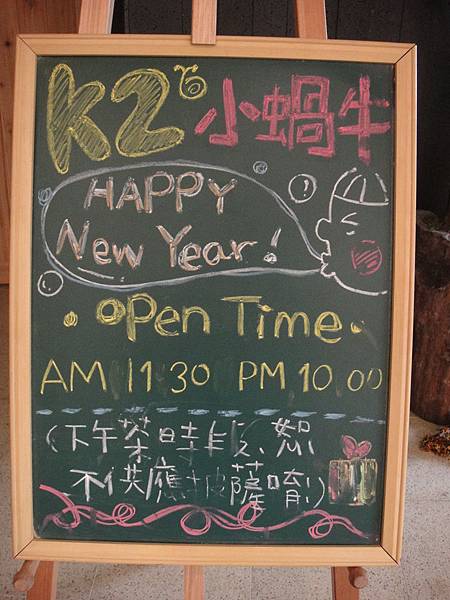 K2 小蝸牛
HAPPY
New Year!
• open Time •
AM 11:30 PM 10:00
(下午茶時段,恕
不供應披薩唷!)